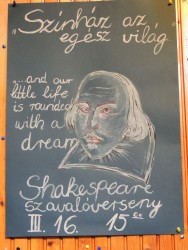 „Színház az
egész világ”
„...and our
little life
is rounded
with a
dream
Shakespeare
szavalóverseny
III. 16. 15 és